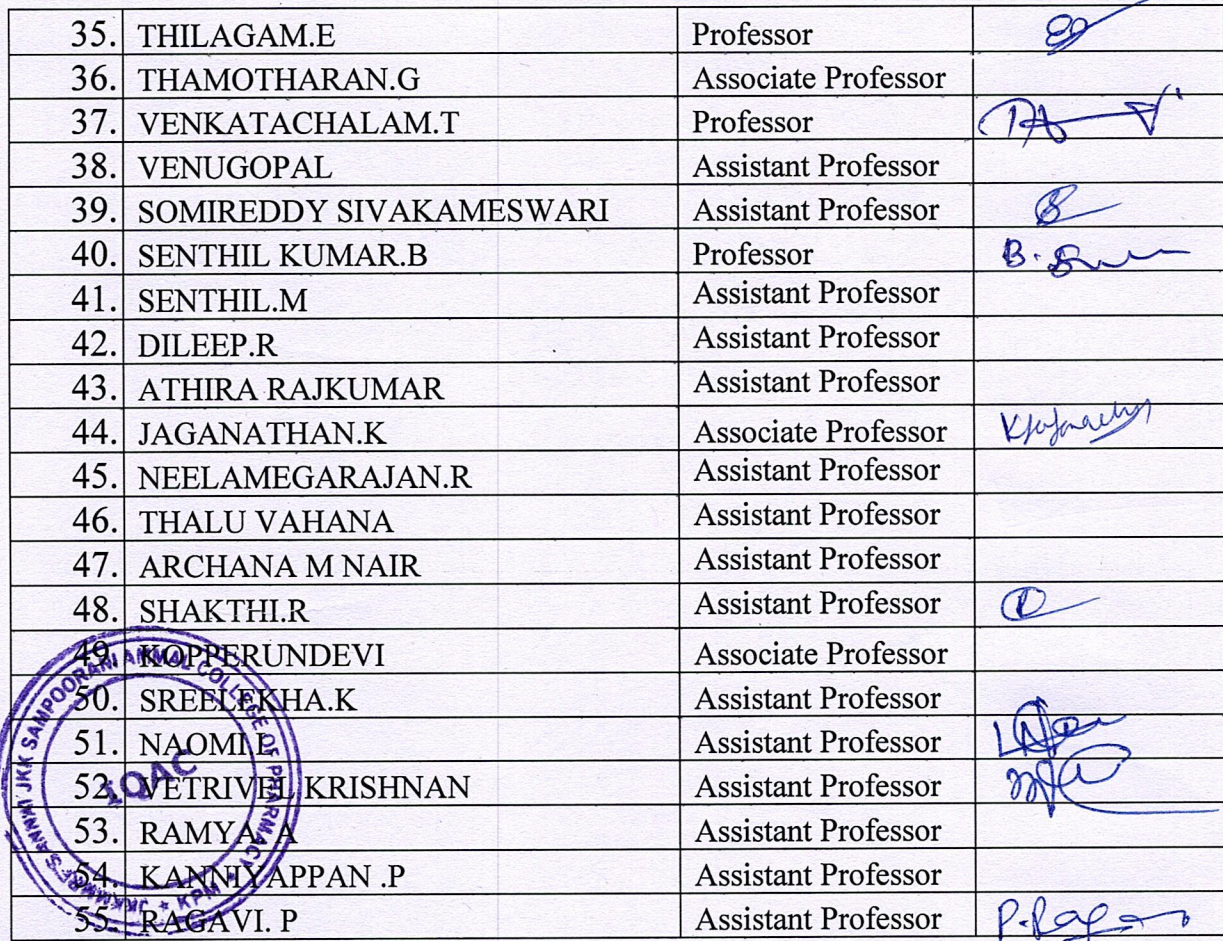 35. THILAGAM.E Professor
36. THAMOTHARAN.G Associate Professor
37. VENKATACHALAM.T Professor
38. VENUGOPAL Assistant Professor
39. SOMIREDDY SIVAKAMESWARI Assistant Professor
40. SENTHIL KUMAR.B Professor B.
41. SENTHIL.M Assistant Professor
42. DILEEP.R Assistant Professor
43. ATHIRA RAJKUMAR Assistant Professor
44. JAGANATHAN.K Associate Professor
45. NEELAMEGARAJAN.R Assistant Professor
46. THALU VAHANA Assistant Professor
47. ARCHANA M NAIR Assistant Professor
48. SHAKTHI.R Assistant Professor
49. KOPPERUNDEVI Associate Professor
50. SREELEKHA.K Assistant Professor
51. NAOMI.L Assistant Professor
52. VETRIVEL KRISHNAN Assistant Professor
53. RAMYA. A Assistant Professor
54. KANNIYAPPAN .P Assistant Professor
55. RAGAVI. P Assistant Professor
JKK SAMPOORANI AMMAL COLLEGE OF PHARMACY
KPM
IQAC